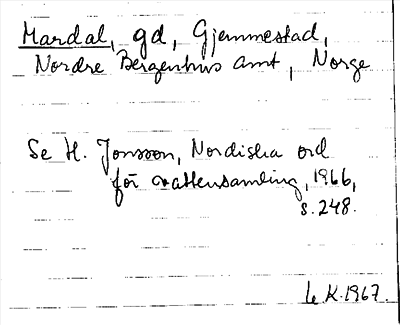 Mardal, gd, Gjemmestad,
Nordre Bergenhus amt, Norge
Se H. Jonsson, Nordiska ord
för vattensamling, 1966,
s. 248.
Le K. 1967.